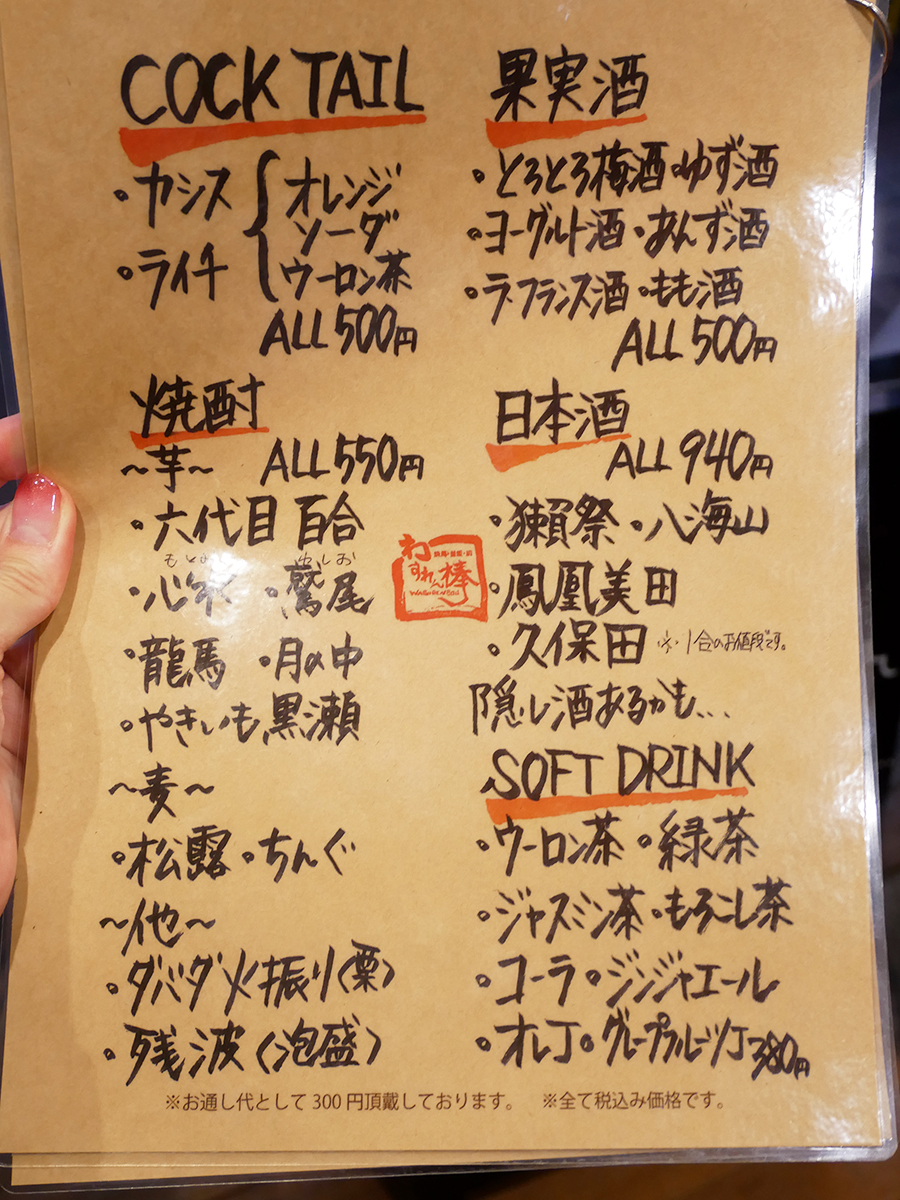 COCKTAIL
・カシス
・ライチ
オレンジ
ソーダ
ウーロン茶
ALL 500円
焼酎
~芋~ ALL 550円
・六代目 百合
もと ゆしお
・心 ・鷲尾
・龍馬 ・月の中
・やきいも黒瀬
~麦~
・松露 ・ちんぐ
~他~
・ダバダ火振り(栗)
・残波(泡盛)
果実酒
・とろとろ梅酒・ゆず酒
・ヨーグルト酒・あんず酒
・ラ・フランス酒・もも酒
ALL 500円
日本酒
ALL 940円
・獺祭 ・八海山
・鳳凰美田
・久保田 ※1合のお値段です。
隠し酒あるかも...
SOFT DRINK
・ウーロン茶 ・緑茶
・ジャスミン茶・もろこし茶
・コーラ・ジンジャエール
・オレJ・グレープフルーツJ 380円
わすれん棒
※お通し代として300円頂戴しております。 ※全て税込み価格です。